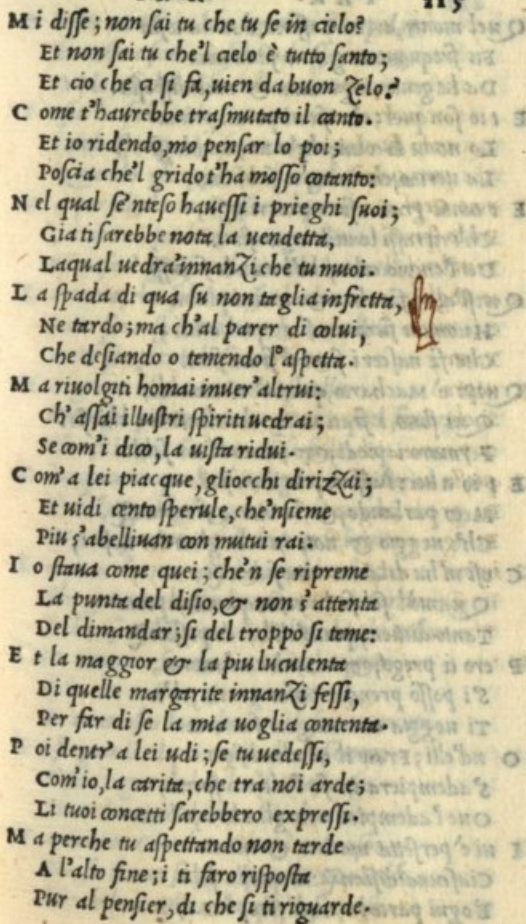 115
Mi disse; non sai tu che tu se in cielo?
Et non sai tu che'l cielo è tutto santo;
Et cio che ci si fa, uien da buon Zelo?
Come t'haurebbe trasmutato il canto.
Et io ridendo, mo pensar lo poi;
Poscia che'l grido t'ha mosso cotanto:
Nel qual se'nteso hauessi i prieghi suoi;
Gia ti sarebbe nota la uendetta,
Laqual uedra'innanZi che tu muoi.
La spada di qua su non taglia infretta,
Ne tardo; ma ch'al parer di colui,
Che desiando o temendo l'aspetta.
Ma riuolgiti homai inuer'altrui:
Ch'assai illustri spiriti uedrai;
Se com'i dico, la uista ridui.
Com'a lei piacque, gliocchi dirizZai;
Et uidi cento sperule, che'nsieme
Piu s'abelliuan con mutui rai.
Io staua come quei; che'n se ripreme
La punta del disio, & non s'attenta
Del dimandar; si del troppo si teme:
Et la maggior & la piu luculenta
Di quelle margarite innanZi fessi,
Per far di se la mia uoglia contenta.
Poi dentr'a lei udi; se tu uedessi,
Com'io, la carita, che tra noi arde;
Li tuoi concetti sarebbero expressi.
Ma perche tu aspettando non tarde
A l'alto fine; i ti faro risposta
Pur al pensier, di che si ti riguarde.